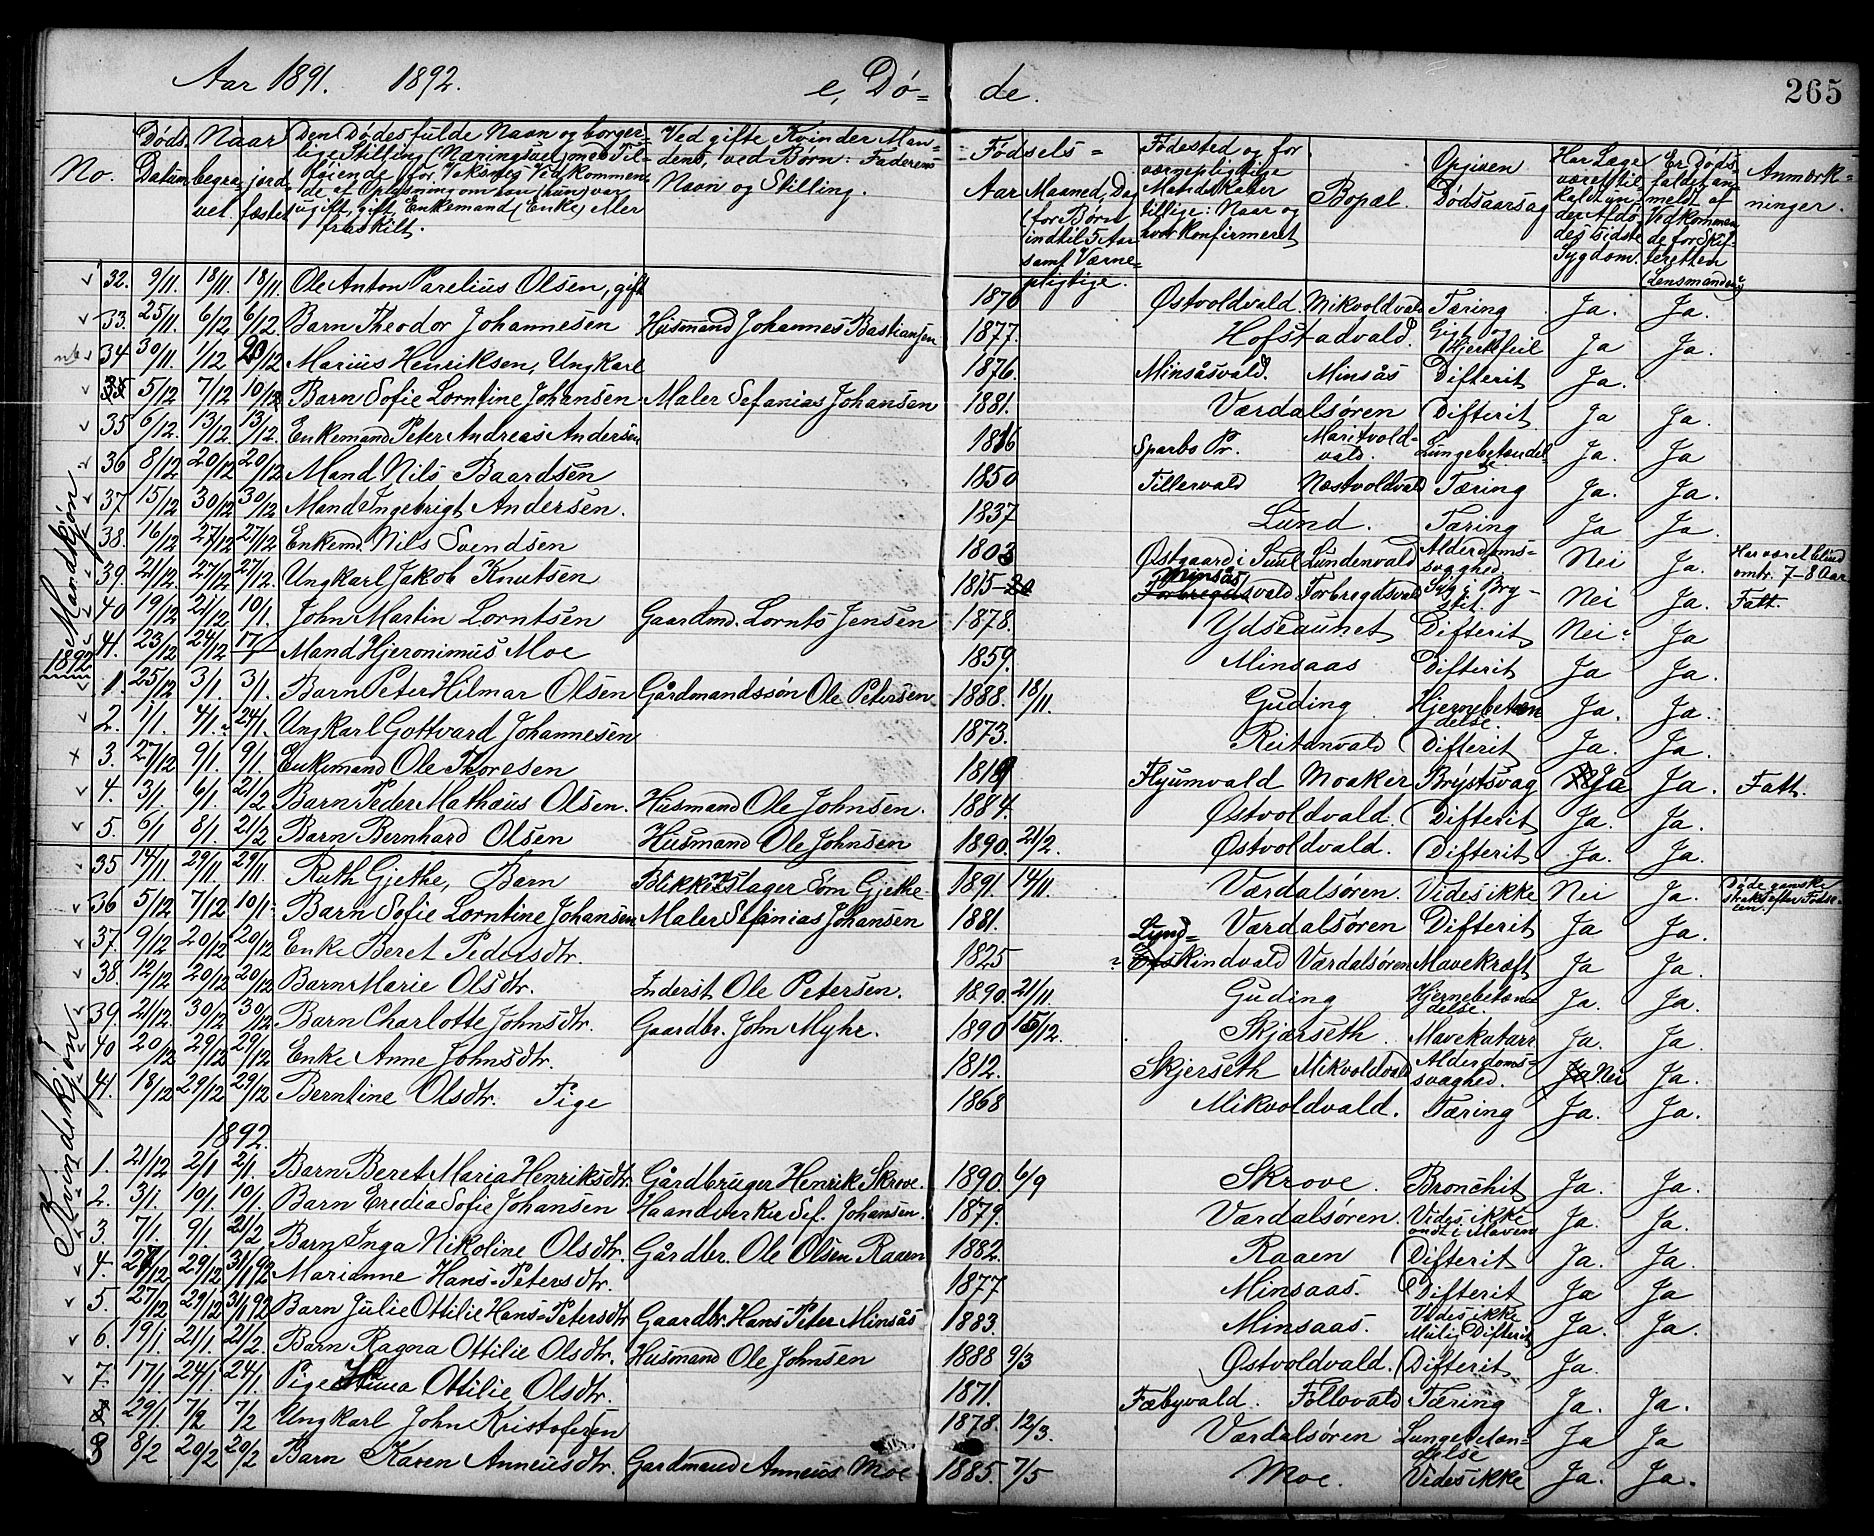 Aar 1891. 1892. e, Dø= de. 265
No.
Døds Datum
Naar begra- vet. jord- fæstet
Den Dødes fulde Navn og borger-
lige Stilling (Næringsvei) med Til-
føiende for Voksnes Vedkommen-
de af Oplysning om han (hun) var
ugift, gift, Enkemand (Enke) eller
fraskilt.
Ved gifte Kvinder Man-
dens, ved Børn: Faderens
Navn og Stilling.
Fødsels=
Aar
Maaned, Dag
(for Børn
indtil 5 Aar
samt Værne-
pligtige.
Fødested og for
værnepligtige
Mandskaber
tillige: Naar og
hvor konfirmeret
Bopæl.
Opgiven
Dødsaarsag
Har Læge
været til-
kaldt un-
der Afdø-
des sidste
Sygdom.
Er Døds-
faldet an-
meldt af
Vedkommen-
de for Skif-
teretten
(Lensmanden)
Anmærk=
ninger.
Mandkjøn
32. 9/11 18/11 18/11. Ole Anton Parelius Olsen, gift 1876 Østvoldvald. Mikvoldvald Tæring Ja. Ja.
33. 25/11. 6/12 6/12. Barn Theodor Johannesen Husmand Johannes Bastiansen 1877. Hofstadvald. Gigt og Hjertefeil Ja Ja.
34. 30/11. 1/12 20/12 Marius Henriksen, Ungkarl 1876. Minsåsvald. Minsås Difterit Ja.
35 5/12 7/12 10/12 Barn Sofie Lorntine Johansen Maler Sefanias Johansen 1881. Værdalsøren Difterit Ja Ja.
35 6/12. 13/12 13/12. Enkemand Peter Andreas Andersen 1816 Sparbo Pr. Maritvold-vald. Lungebetændel-se Ja. Ja
36 8/12 20/12 20/12 Mand Nils Baardsen 1850 Tillervald Næstvoldvald Tæring Ja. Ja.
37 15/12 30/12 30/12 Mand Ingebrigt Andersen. 1837 Lund. Tæring Ja Ja.
38. 16/12 27/12 27/12 Enkemd. Nils Svendsen 1803 Østgaard i Suul Lundenvald Alderdoms-svaghed. Nei Ja. Har været blind omtr. 7-8 Aar
39. 21/12. 27/12 27/12. Ungkarl Jakob Knutsen 1815-20 Minsås Forbregdsvald Forbregdsvald Sting i Bry-stet. Nei Ja. Fatt.
40 19/12 21/12 10/1. John Martin Lorntsen Gaardmd. Lornts Jensen 1878. Ydseaunet Difterit Nei. Ja
41. 23/12 24/12 17/1 Mand Hjeronimus Moe 1859. Minsaas Difterit Ja Ja.
1892
1. 25/12 3/1. 3/1. Barn Peter Hilmar Olsen Gårdmandssøn Ole Petersen. 1888. 18/11. Guding Hjernebetæn-delse Ja. Ja.
2. 1/1. 4/1. 24/1. Ungkarl Gottvard Johannesen 1873. Reitanvald Difterit Ja. Ja.
3. 27/12 9/1. 9/1. Enkemand Ole Thoresen 1819 Flyumvald Moaker Brystsvag Ja Ja. Fatt.
4. 3/1. 6/1. 21/2 Barn Peder Mathæus Olsen. Husmand Ole Johnsen. 1884. Østvoldvald. Difterit Ja. Ja.
5. 6/1 8/1. 21/2 Barn Bernhard Olsen Husmand Ole Johnsen 1890. 21/2. Østvoldvald. Difterit Ja. Ja.
Kvindekjøn
35 14/11 29/11 29/11 Ruth Gjethe, Barn Blikkenslager Søm Gjethe. 1891. 14/11. Værdalsøren. Vides ikke Nei Ja. Døde ganske straks efter Fødse-len.
36 5/12 7/12 10/1. Barn Sofie Lorntine Johansen Maler Stefanias Johansen 1881. Værdalsøren Difterit Ja Ja.
37. 9/12 20/12 20/12 Enke Beret Pedersdtr. 1825 Lynd-kindvald Værdalsøren Mavekræft Ja Ja.
38. 12/12 20/12 20/12 Barn Marie Olsdtr. Inderst Ole Petersen. 1890. 21/11. Guding Hjernebetæn-delse. Ja. Ja.
39. 21/12. 30/12 30/12. Barn Charlotte Johnsdtr. Gaardbr. John Myhr. 1890 15/12. Skjærseth. Mavekatarr Ja. Ja.
40 20/12 29/12 29/12. Enke Anne Johnsdtr. 1812. Skjerseth Mikvoldvald Alderdoms-svaghed. Ja Nei Ja.
41. 18/12 29/12 29/12 Berntine Olsdtr. Pige 1868 Mikvoldvald. Tæring Ja. Ja.
1892.
1. 21/12 2/1. 2/1. Barn Beret Maria Henriksdtr. Gårdbruger Henrik Skrove. 1890. 6/9 Skrove. Bronchit Ja. Ja.
2. 3/1. 10/1. 10/1. Barn Eredia Sofie Johansen Haandverker Sef. Johansen. 1879. Værdalsøren. Vides ikke ondt i Maven Ja. Ja.
3. 7/1. 9/1. 21/2 Barn Inga Nikoline Olsdtr. Gårdbr. Ole Olsen Raaen 1882. Raaen Difterit Ja. Ja.
4. 27/12 29/12 31/1 92 Marianne Hans-Petersdtr. 1877 Minsaas. Difterit Ja Ja
5. 27/12 29/12 31/1 92 Barn Julie Ottilie Hans-Petersdtr Gaardbr. Hans Peter Minsås 1883. Minsaas. Vides ikke Mulig Difterit Ja. Ja.
6. 19/1. 21/1. 21/2. Barn Ragna Ottilie Olsdtr. Husmand Ole Johnsen 1888 9/3 Østvoldvald. Difterit Ja.
7. 17/1 24/1. 24/1. Pige Ottilie Olsdtr. 1871. Fæbyvald. Follovald Tæring Ja. Ja.
8 29/1. 7/2 7/2 Ungkarl John Kristofersen 1878. 12/3. Værdalsøren Lungebetæn-delse Ja Ja
8 8/2 20/2 20/2 Barn Karen Anneusdtr. Gardmand Anneus Moe 1885. 7/5 Moe. Vides ikke Ja. Ja.